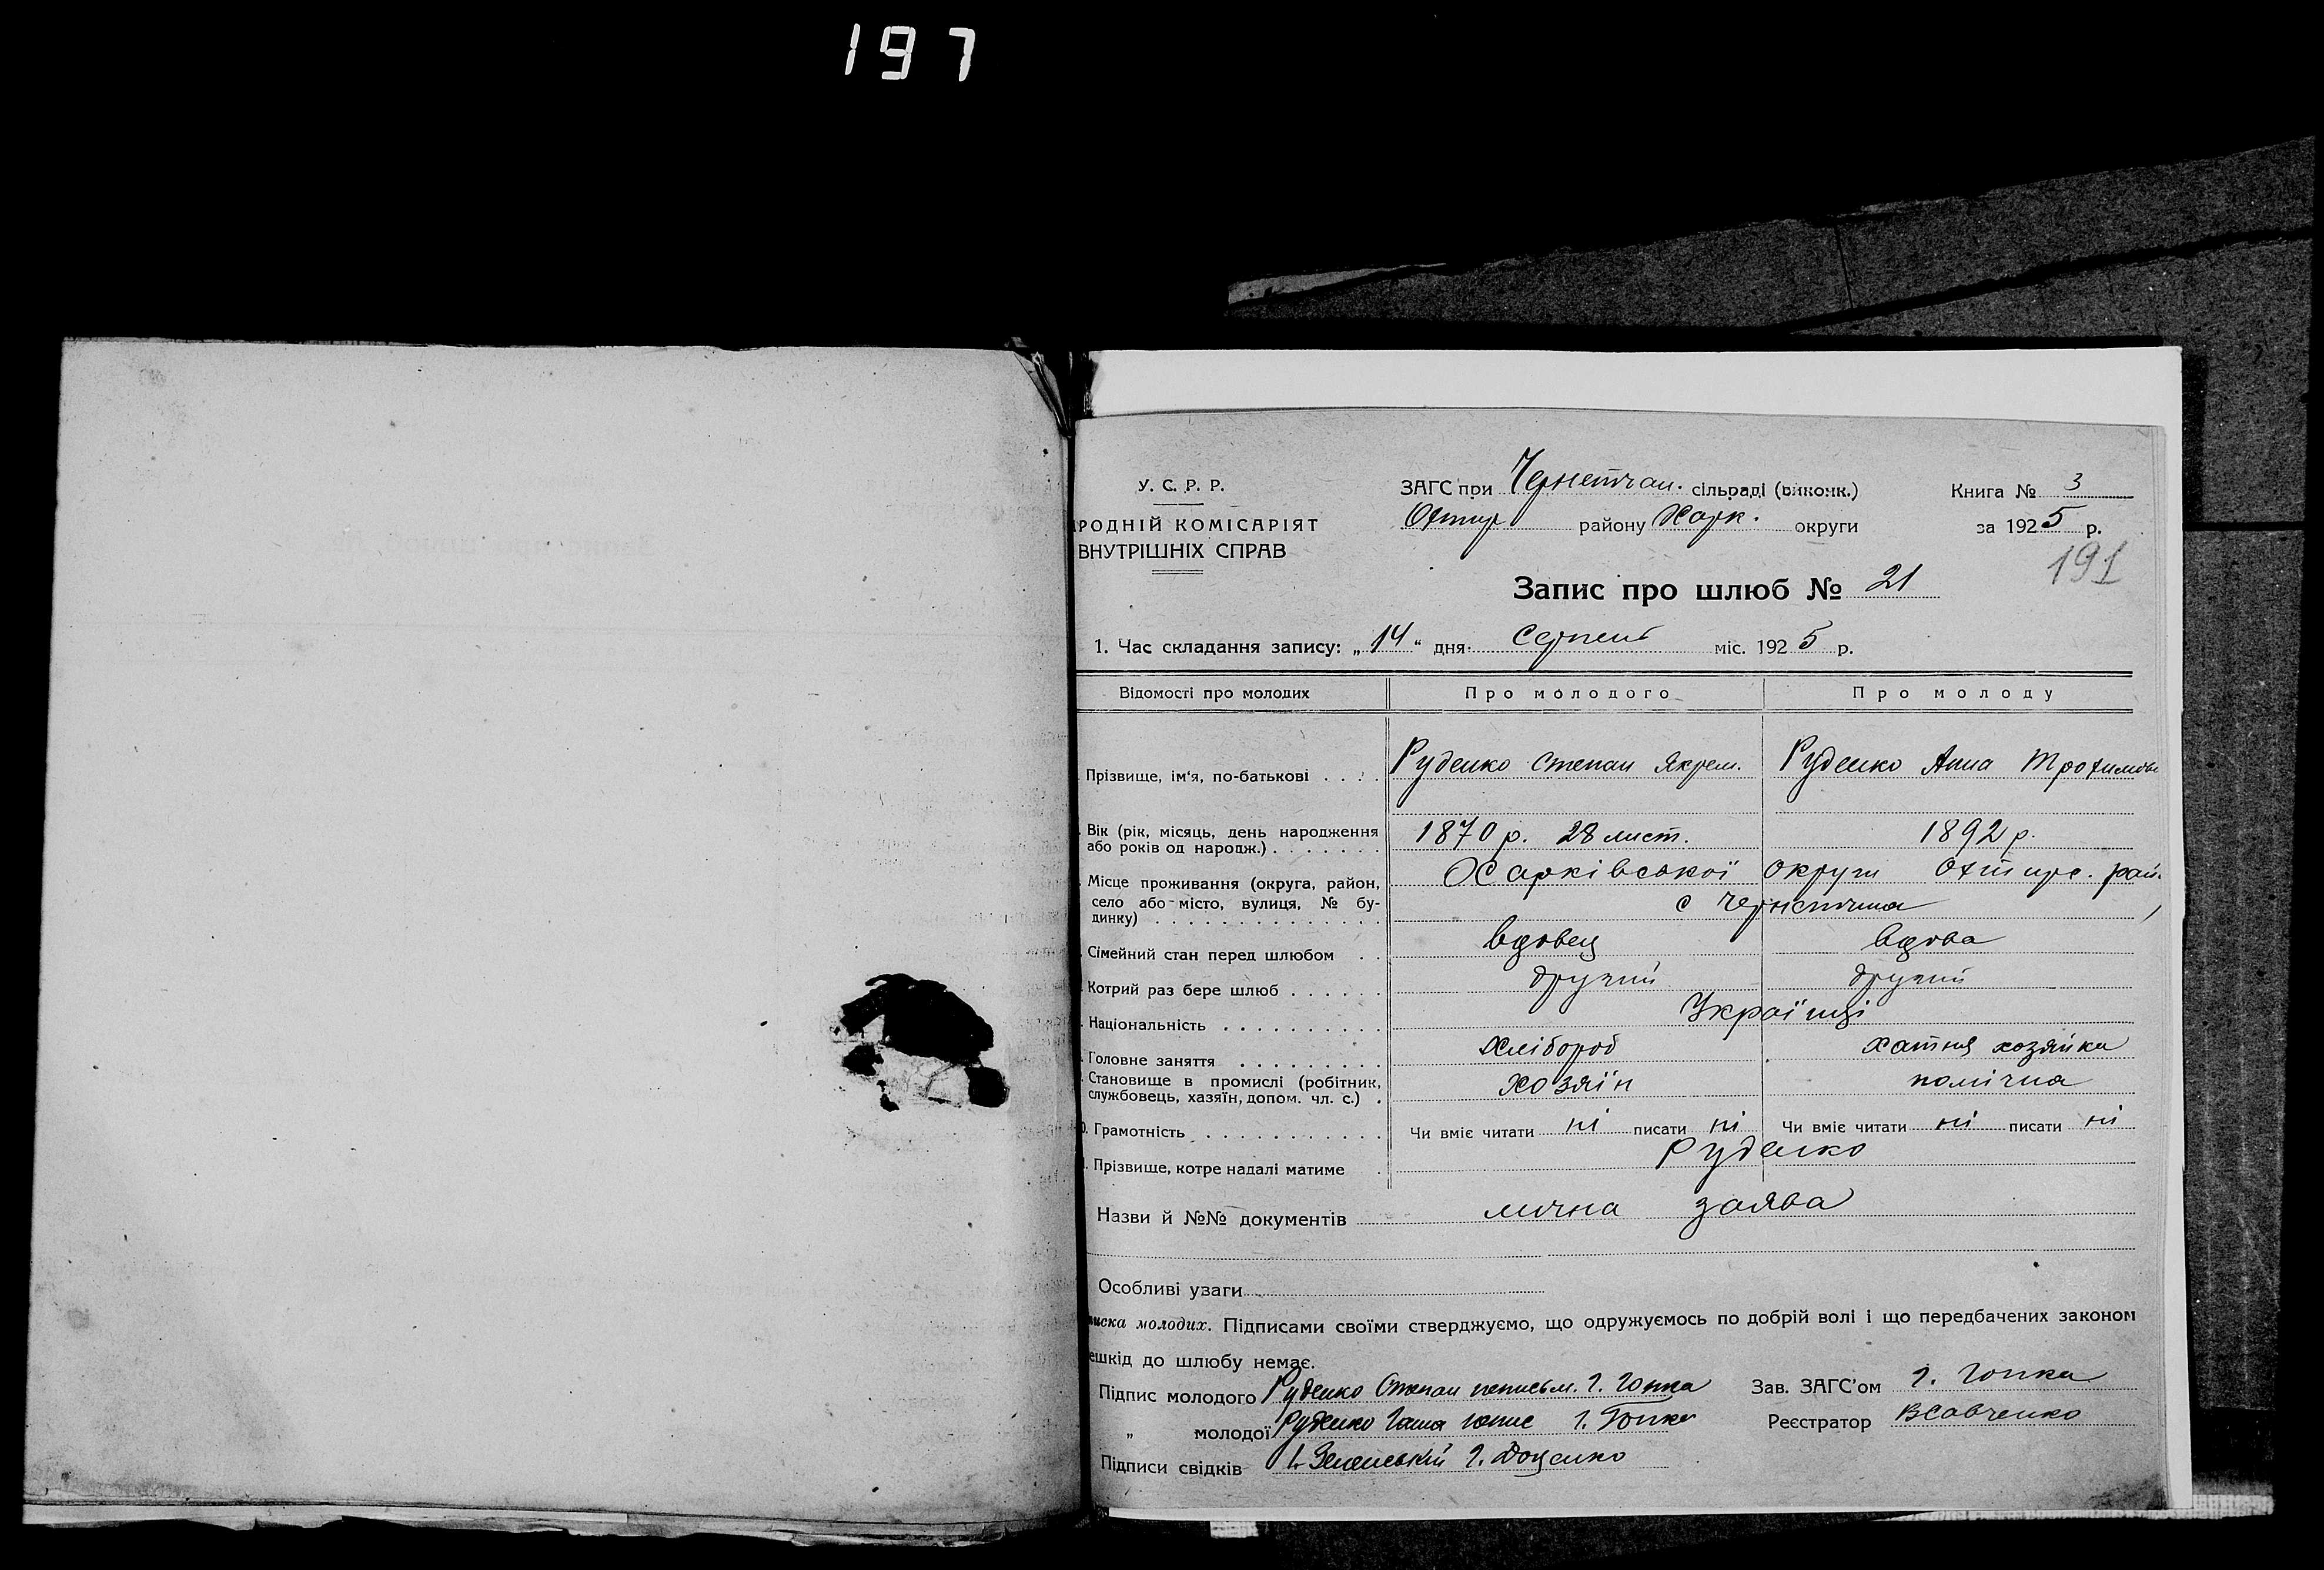 197
У. С. Р. Р.
РОДНІЙ КОМІСАРІЯТ
ВНУТРІШНІХ СПРАВ
ЗАГС при Чернетчан. сільраді (виконк.)
Охтир району Харк. округи
Книга № 3
за 1925 р.
191
Запис про шлюб № 21
1. Час складання запису: „14“ дня Серпень міс. 1925 р.
Відомості про молодих Про молодого Про молоду
Прізвище, ім'я, по-батькові . . . . Руденко Степан Яхрем. Руденко Анна Трофимов
Вік (рік, місяць, день народження
або років од народж.) . . . . . . . 1870 р. 28 лист. 1892 р.
Місце проживання (округа, район, Харківської округи Охтирс. рай.
село або місто, вулиця, № бу-
динку) . . . . . . . . . . . . . . с Чернетчина
Сімейний стан перед шлюбом . . вдовец вдова
Котрий раз бере шлюб . . . . . . другий другий
Національність . . . . . . . . . . Українці
Головне заняття . . . . . . . . . Хлібороб хатня хозяйка
Становище в промислі (робітник,
службовець, хазяїн, допом. чл. с.) . хозяїн помічна
0. Грамотність . . . . . . . . . . . Чи вміє читати ні писати ні Чи вміє читати ні писати ні
Прізвище, котре надалі матиме . Руденко
Назви й №№ документів лична заява
Особливі узаги
иска молодих. Підписами своїми стверджуємо, що одружуємось по добрій волі і що передбачених законом
ешкід до шлюбу немає.
Підпис молодого Руденко Степан неписьм. І. Гопка Зав. ЗАГС'ом І. Гопка
„ молодої Руденко Ганна І. Гопка Реєстратор ВСавченко
Підписи свідків І. Зеленський І. Доценко